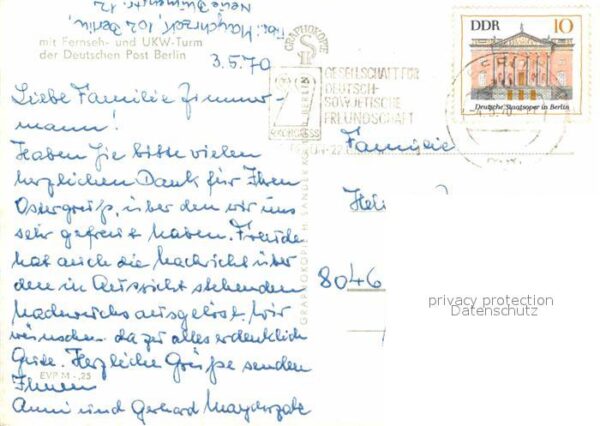 Abs: Maychrzak, 102 Berlin,
Neue Blumenstr. 12
mit Fernseh- und UKW-Turm
der Deutschen Post Berlin
3.5.70
Liebe Familie Zimmer-
mann!
Haben Sie bitte vielen
herzlichen Dank für Ihren
Ostergruß, über den wir uns
sehr gefreut haben. Freude
hat auch die Nachricht über
den in Aussicht stehenden
Nachwuchs ausgelöst, wir
wünschen dazu alles erdenklich
Gute. Herzliche Grüße senden
Ihnen
Anni und Gerhard
EVP M -,25
GRAPHOKOPIE
GRAPHOKOPIE H. SANDER KG BERLIN
GESELLSCHAFT FÜR
DEUTSCH-
SOWJETISCHE
FREUNDSCHAFT
KONGRESS
DDR 10
Deutsche Staatsoper in Berlin
Familie
8046
privacy protection
Datenschutz